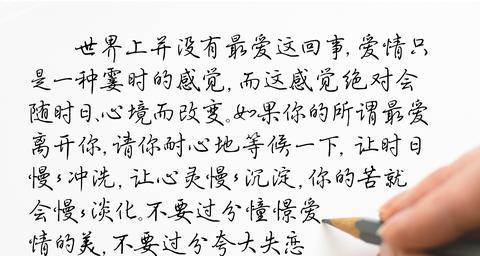 世界上并没有最爱这回事，爱情只
是一种霎时的感觉，而这感觉绝对会
随时日、心境而改变。如果你的所谓最爱
离开你，请你耐心地等候一下，让时日
慢慢冲洗，让心灵慢慢沉淀，你的苦就
会慢慢淡化。不要过分憧憬爱
情的美，不要过分夸大失恋